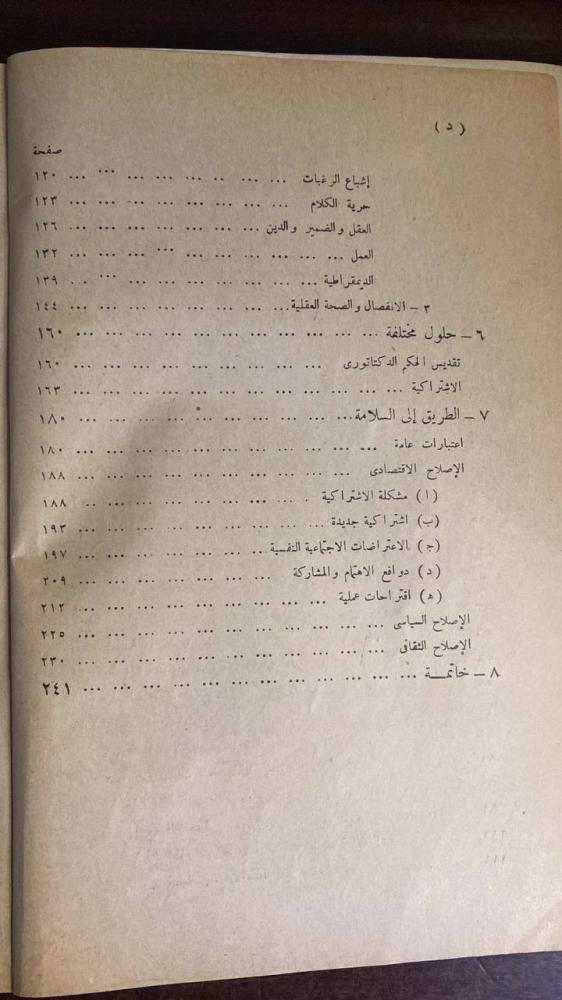 ( د )
صفحة
إشباع الرغبات ... ... ... ... ... ... ... ... ١٢٠
حرية الكلام ... ... ... ... ... ... ... ... ١٢٣
العقل والضمير والدين ... ... ... ... ... ... ... ... ١٢٦
العمل ... ... ... ... ... ... ... ... ... ١٣٢
الديمقراطية ... ... ... ... ... ... ... ... ١٣٩
٣ - الانفصال والصحة العقلية ... ... ... ... ... ... ... ١٤٤
٦ - حلول مختلفة ... ... ... ... ... ... ... ... ... ... ١٦٠
تقديس الحكم الدكتاتورى ... ... ... ... ... ... ... ... ١٦٠
الاشتراكية ... ... ... ... ... ... ... ... ... ... ١٦٣
٧ - الطريق إلى السلامة ... ... ... ... ... ... ... ... ... ١٨٠
اعتبارات عامة ... ... ... ... ... ... ... ... ... ... ١٨٠
الإصلاح الاقتصادى ... ... ... ... ... ... ... ... ... ١٨٨
( ا ) مشكلة الاشتراكية ... ... ... ... ... ... ... ١٨٨
(ب) اشتراكية جديدة ... ... ... ... ... ... ... ... ١٩٣
(ج) الاعتراضات الاجتماعية النفسية ... ... ... ... ... ... ١٩٧
( د ) دوافع الاهتمام والمشاركة ... ... ... ... ... ... ٢٠٩
(ه) اقتراحات عملية ... ... ... ... ... ... ... ... ٢١٢
الإصلاح السياسى ... ... ... ... ... ... ... ... ... ... ٢٢٥
الإصلاح الثقافى ... ... ... ... ... ... ... ... ... ... ٢٣٠
٨ - خاتمـــة ... ... ... ... ... ... ... ... ... ... ... ٢٤١